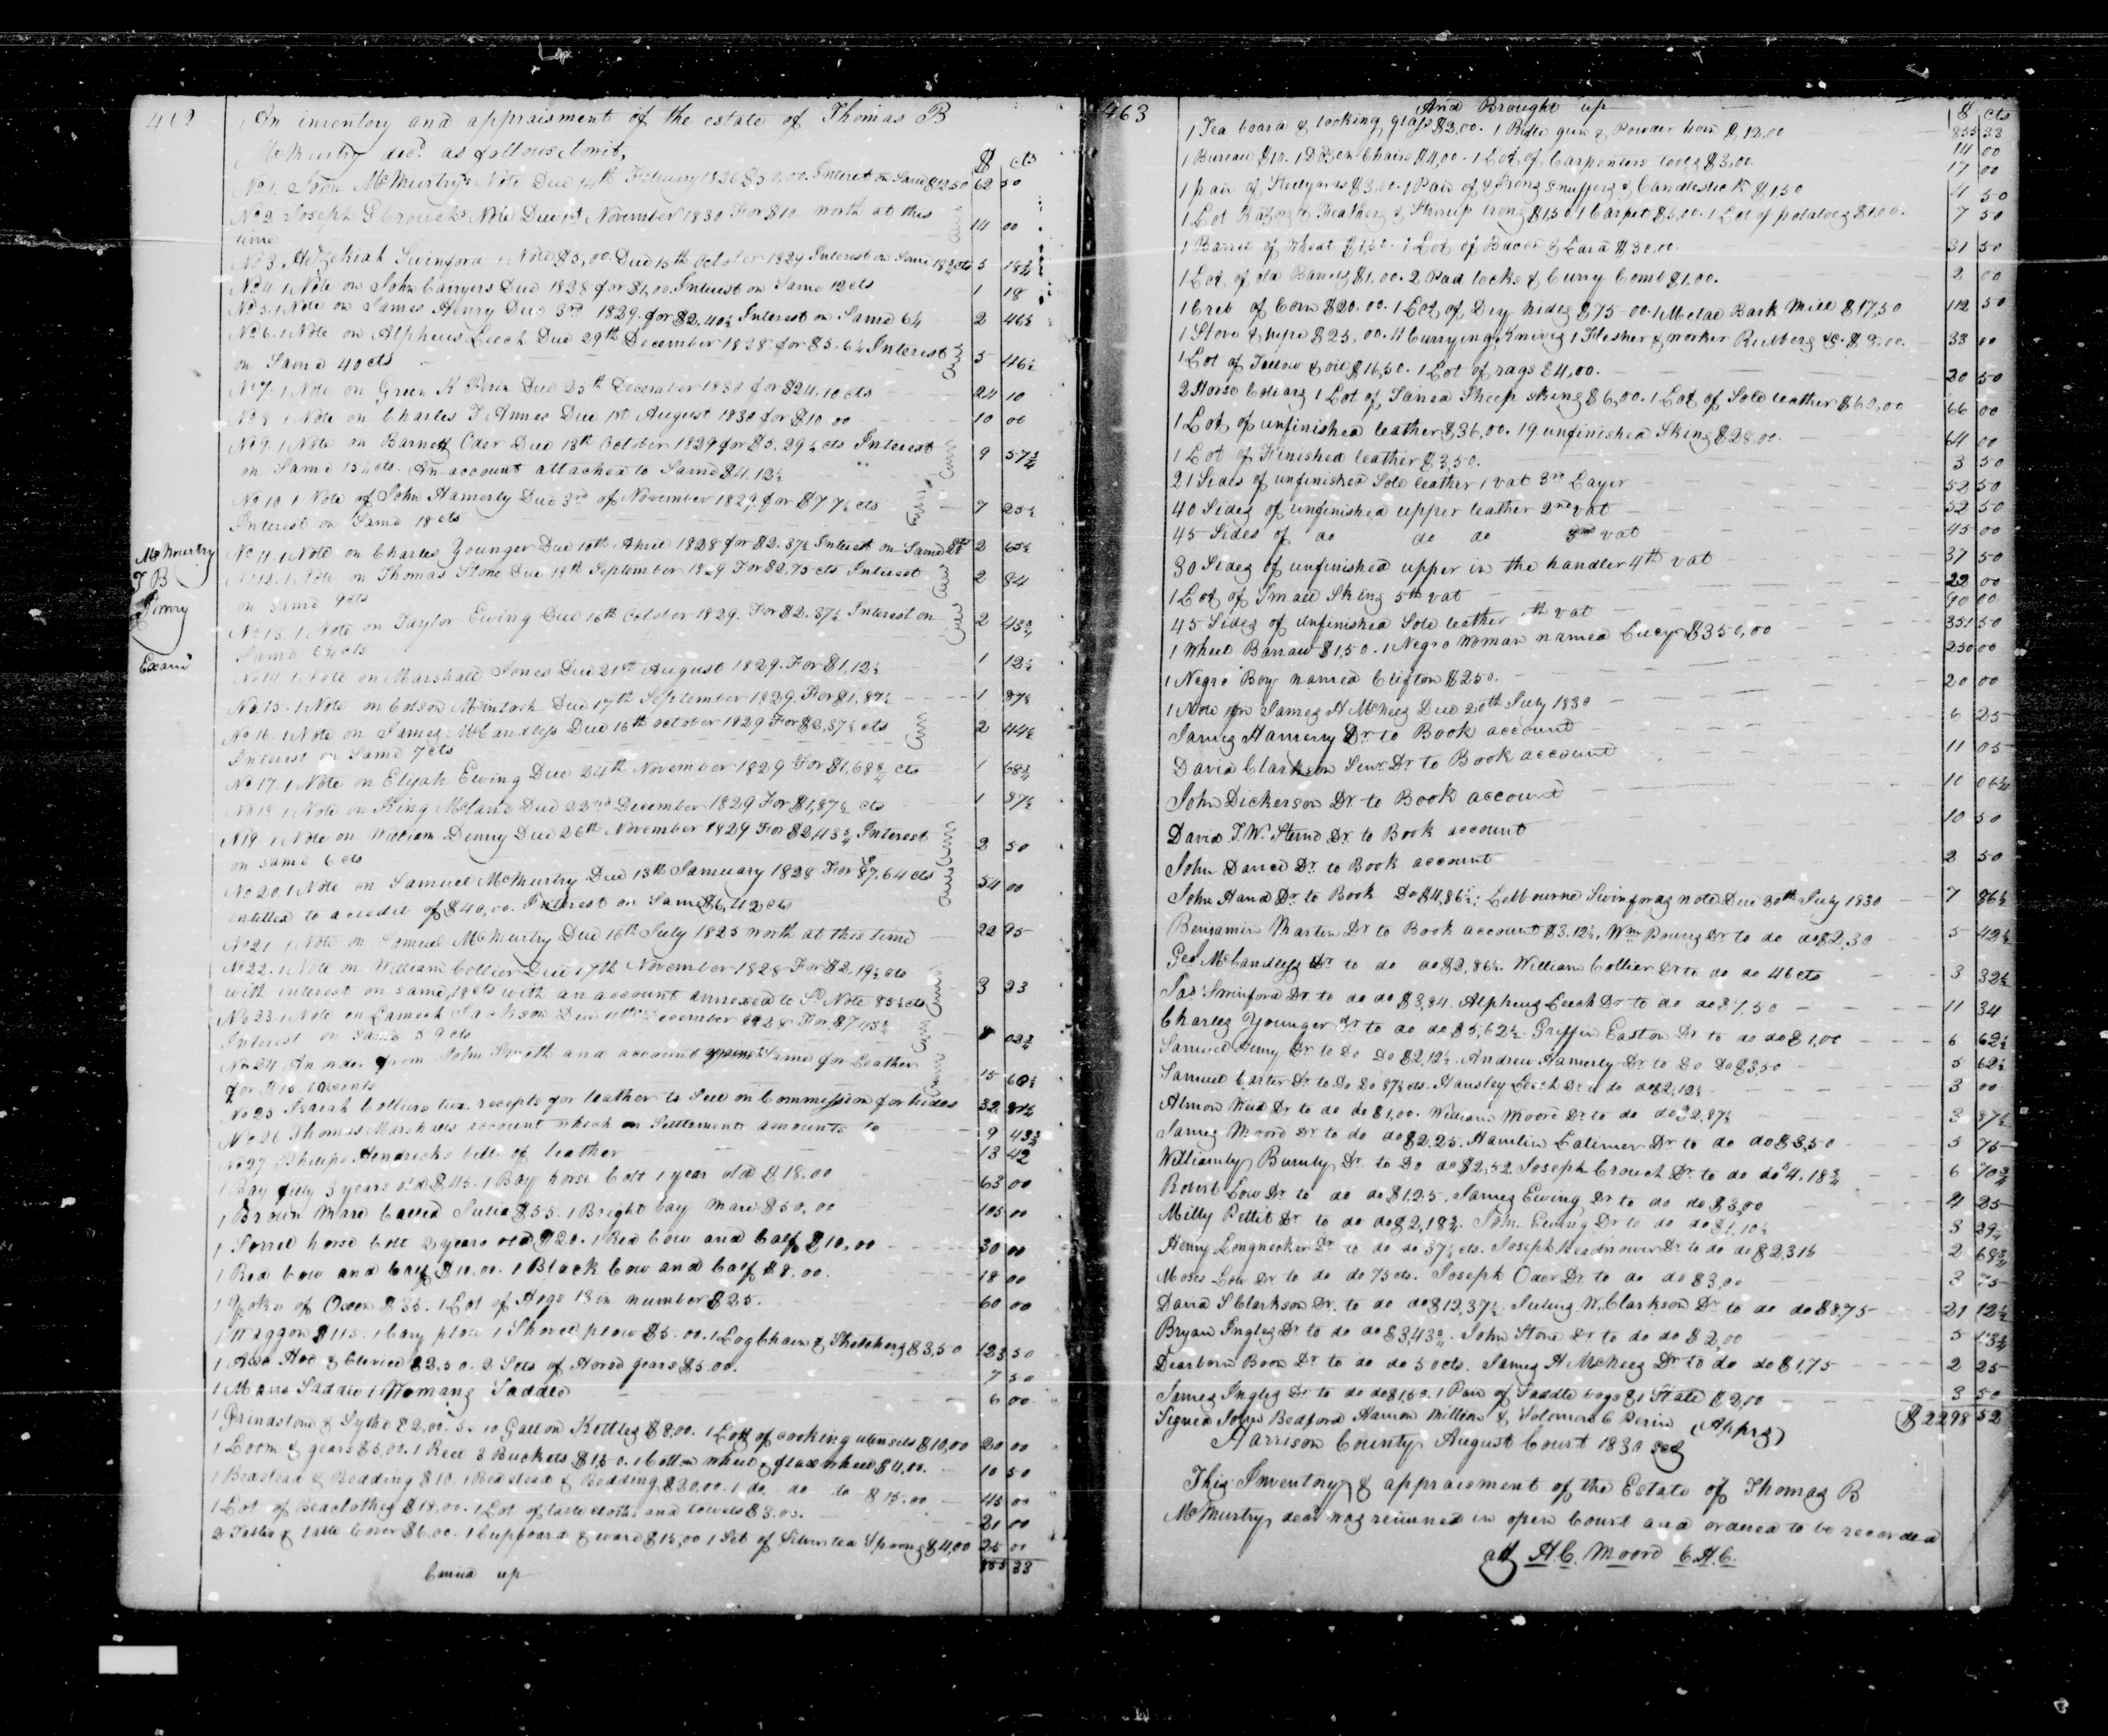 462
An inventory and appraisment of the estate of Thomas B
McMurtry decd. as follows towit,
$ cts
No 1. John McMurtry's Note Due 14th February 1826 $50.00. Interest on Same $12.50 62 50
No 2 Joseph G Crouchs Note Due 1st November 1830 For $10 worth at this 14 00
time
No 3 Hezekiah Swinford 1 Note $5,00. Due 15th October 1829 Interest on Same 18¾ cts 5 18¾
No 4. 1 Note on John Carryers Due 1828 for $1,00. Interest on Same 12 cts 1 18
No 5. 1 Note on James Henry Due 3rd 1829. for $2,40¼ Interest on Same 6¼ 2 46½
No 6. 1 Note on Alpheus Leech Due 29th December 1828 for $5.6¼ Interest 5 46½
on Same 40 cts
No 7. 1 Note on Green K Perin Due 25th December 1830 for $24,10 cts 24 10
No 8. 1 Note on Charles T Annes Due 1st August 1830 for $10.00 10 00
No 9. 1 Note on Barnett Oder Due 13th October 1829 for $5.29½ cts Interest 9 57¾
on Same 15¼ cts. An account attached to Same $4.12½
No 10. 1 Note of John Hamerly Due 3rd of November 1829 for $7 7½ cts 7 25½
Interest on Same 18 cts
McMurtry
T B
Invry
Examd
No 11. 1 Note on Charles Younger Due 10th April 1828 for $2.37½ Interest on Same 28 2 65½
No 12. 1 Note on Thomas Stone Due 18th September 1829 For $2.75 cts Interest 2 84
on same 9 cts
No 13. 1 Note on Taylor Ewing Due 16th October 1829. For $2.37½ Interest on 2 43¾
Same 6¼ cts
No 14 1 Note on Marshall Jones Due 21st August 1829. For $1,12½ 1 12½
No 15. 1 Note on Colson McIntosh Due 17th September 1829. For $1,87½ 1 87½
No 16. 1 Note on James McCandless Due 16th October 1829 For $2,37½ cts 2 44½
Interest on Same 7 cts
No 17. 1 Note on Elijah Ewing Due 24th November 1829 For $1,68¾ cts 1 68¾
No 18. 1 Note on King McLand Due 22nd December 1829 For $1,87½ cts 1 87½
N 19. 1 Note on William Denny Due 26th November 1829 For $2,43¾ Interest 2 50
on same 6 cts
No 20. 1 Note on Samuel McMurtry Due 13th January 1828 For 87,64 cts 54 00
entitled to a credit of $40,00. Interest on Same $6,42 cts
No 21 1 Note on Samuel McMurtry Due 16th July 1825 worth at this time 22 95
No 22. 1 Note on William Collier Due 17th November 1828 For $2.19½ cts
with interest on same, 18 cts with an account annexed to Sd Note 85½ cts 3 23
No 23. 1 Note on Lamech Jackson Due 11th December 1828 For $7 43¾
Interest on Same 59 cts 8 02¾
No 24 An order from John Smith and account against Same for Leather
for $15. 10 cents 15 60½
No 25 Isaiah Colliers two recepts for leather to Sell on Commission for hides 32 87½
No 26 Thomas Marshalls account which on Settlement amounts to 9 43¾
No 27 Philips Hendricks bill of leather 13 42
1 Bay filly 3 years old $45. 1 Bay horse Colt 1 year old $18.00 63 00
1 Brown Mare Called Julia $55. 1 Bright bay Mare $50,00 105 00
1 Sorrel horse Colt 2 years old $20. 1 Red Cow and Calf $10,00 30 00
1 Red Cow and Calf $10.00. 1 Black Cow and Calf $8.00. 18 00
1 Yoke of Oxen $35. 1 Lot of Hogs 13 in number $25. 60 00
1 Waggon $115. 1 Cary plow 1 Shovel plow $5.00. 1 Log Chain & Stretchers $3,50 123 50
1 Axe Hoe & Clevice $2,50. 2 Sets of Horse gears $5.00. 7 50
1 Mans Saddle 1 Womans Saddle 6 00
1 Grindstone & Sythe $2,00. 3. 10 Gallon Kettles $8,00. 1 Lott of cooking utensils $10,00 20 00
1 Loom & gears $5,00. 1 Reel 3 Buckets $1,50. 1 Cotton wheel & flax wheel $4,00. 10 50
1 Beadstead & Bedding $10. 1 Bedstead & Bedding $20,00. 1 do do do $15.00 45 00
1 Lot of Beadclothes $18,00. 1 Lot of table cloths and towels $3.00. 21 00
2 Tables & table Cover $6.00. 1 Cupboard & ware $15,00 1 Set of Silver tea Spoons $4,00 25 00
Carried up 855 33
463
And Brought up
$ cts
855 33
1 Tea board & looking glass $2,00. 1 Rifle gun & Powder horn $12,00 14 00
1 Bureau $10. 1 Dozen Chairs $4,00. 1 Lot of Carpenters tools $3,00. 17 00
1 pair of Steelyards $3.00. 1 Pair of & Irons Snuffers & Candlestick $1,50 4 50
1 Lot Razors & Feathers & Stirrup Irons $1,50 1 Carpet $5,00. 1 Lot of potatoes $1.00. 7 50
1 Barrel of Wheat $1,50. 1 Lot of Bacon & Lard $30.00. 31 50
1 Lot of old Barrels $1.00. 2 Pad locks & Curry Comb $1.00. 2 00
1 Crib of Corn $20.00. 1 Lot of Dry hides $75.00. 1 Metal Bark Mill $17,50 112 50
1 Stove & pipe $25,00. 4 Currying Knives 1 Flesher & worker Rubbers &c. $8.00. 33 00
1 Lot of Tallow & oil $16,50. 1 Lot of rags $4,00. 20 50
2 Horse Collars 1 Lot of Taned Sheep skins $6,00. 1 Lot of Sole leather $60,00 66 00
1 Lot of unfinished leather $36,00. 19 unfinished Skins $28,00. 64 00
1 Lot of Finished leather $3,50. 3 50
21 Sides of unfinished Sole leather 1 vat 3rd Layer 52 50
40 Sides of unfinished upper leather 2nd vat 52 50
45 Sides of do do do 3rd vat 45 00
30 Sides of unfinished upper in the handler 4th vat 37 50
1 Lot of Small Skins 5th vat 22 00
45 Sides of unfinished Sole leather th vat 90 00
1 Wheel Barraw $1,50. 1 Negro Woman named Lucy $350,00 351 50
1 Negro Boy named Clifton $250. 250 00
1 Note on James H McNees Due 20th July 1830 20 00
James Hamerry Dr. to Book account 6 25
David Clarkson Senr. Dr to Book account 11 05
John Dickerson Dr. to Book account 10 06¼
David T. W. Sterne Dr. to Book account 10 50
John David Dr. to Book account 2 50
John Hand Dr. to Book Do $4,86½; Lelbourne Swinfords note Due 30th July 1830 7 86½
Benjamin Martin Dr to Book account $3.12½, Wm Pouns Dr to do do $2,30 5 42½
Geo McCandless Dr to do do $2,86½. William Collier Dr to do do 46 cts 3 32½
Jas Swinford Dr. to do do $3,84. Alpheus Leech Dr to do do $7.50 11 34
Charles Younger Dr to do do $5,62½. Griffin Easton Dr to do do $1,00 6 62½
Samuel Henry Dr to Do Do $2,12½. Andrew Hamerly Dr to Do Do $3,50 5 62½
Samuel Carter Dr. to Do Do 87½ cts. Hansley Leech Dr to do do $2,12½ 3 00
Almon Weed Dr to do do $1,00. William Moore Dr to do do $2,87½ 3 87½
James Moore Dr to do do $2.25. Hamlin Latimer Dr to do do $3,50 5 75
Williamly Burnly Dr. to Do do $2,52 Joseph Crouch Dr. to do do $4.18¾ 6 70¾
Robert Low Dr. to do do $1.25. James Ewing Dr to do do $3,00 4 25
Milly Pettit Dr to do do $2,18¾. John Ewing Dr to do do $1,10½ 3 29¼
Henry Longnecker Dr to do do 37½ cts. Joseph Dr. to do do $2,31¼ 2 68¾
Moses Low Dr to do do 75 cts. Joseph Oder Dr. to do do $3,00 3 75
David S Clarkson Dr. to do do $12,37½. Julius W. Clarkson Dr to do do $8,75 21 12½
Bryan Ingles Dr to do do $3,43¾. John Stone Dr to do do $2,00 5 43¾
Dearborn Boon Dr to do do 50 cts. James H McNees Dr to do do $1,75 2 25
James Ingles Dr to do do $1,50. 1 Pair of Saddle bags & 1 Slate $2,00 3 50
Signed John Bedford Harmon Milton & Solomon C Perin (Apprs) $2298 52
Harrison County August Court 1830 Sct
This Inventory & appraisment of the Estate of Thomas B
McMurtry decd was reiurned in open Court and ordered to be recorded
att H. C. Moore C.H.C.